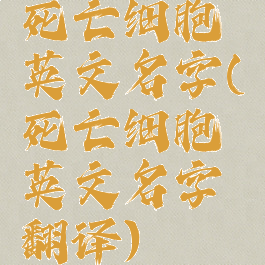 死亡细胞
英文名字(
死亡细胞
英文名字
翻译)